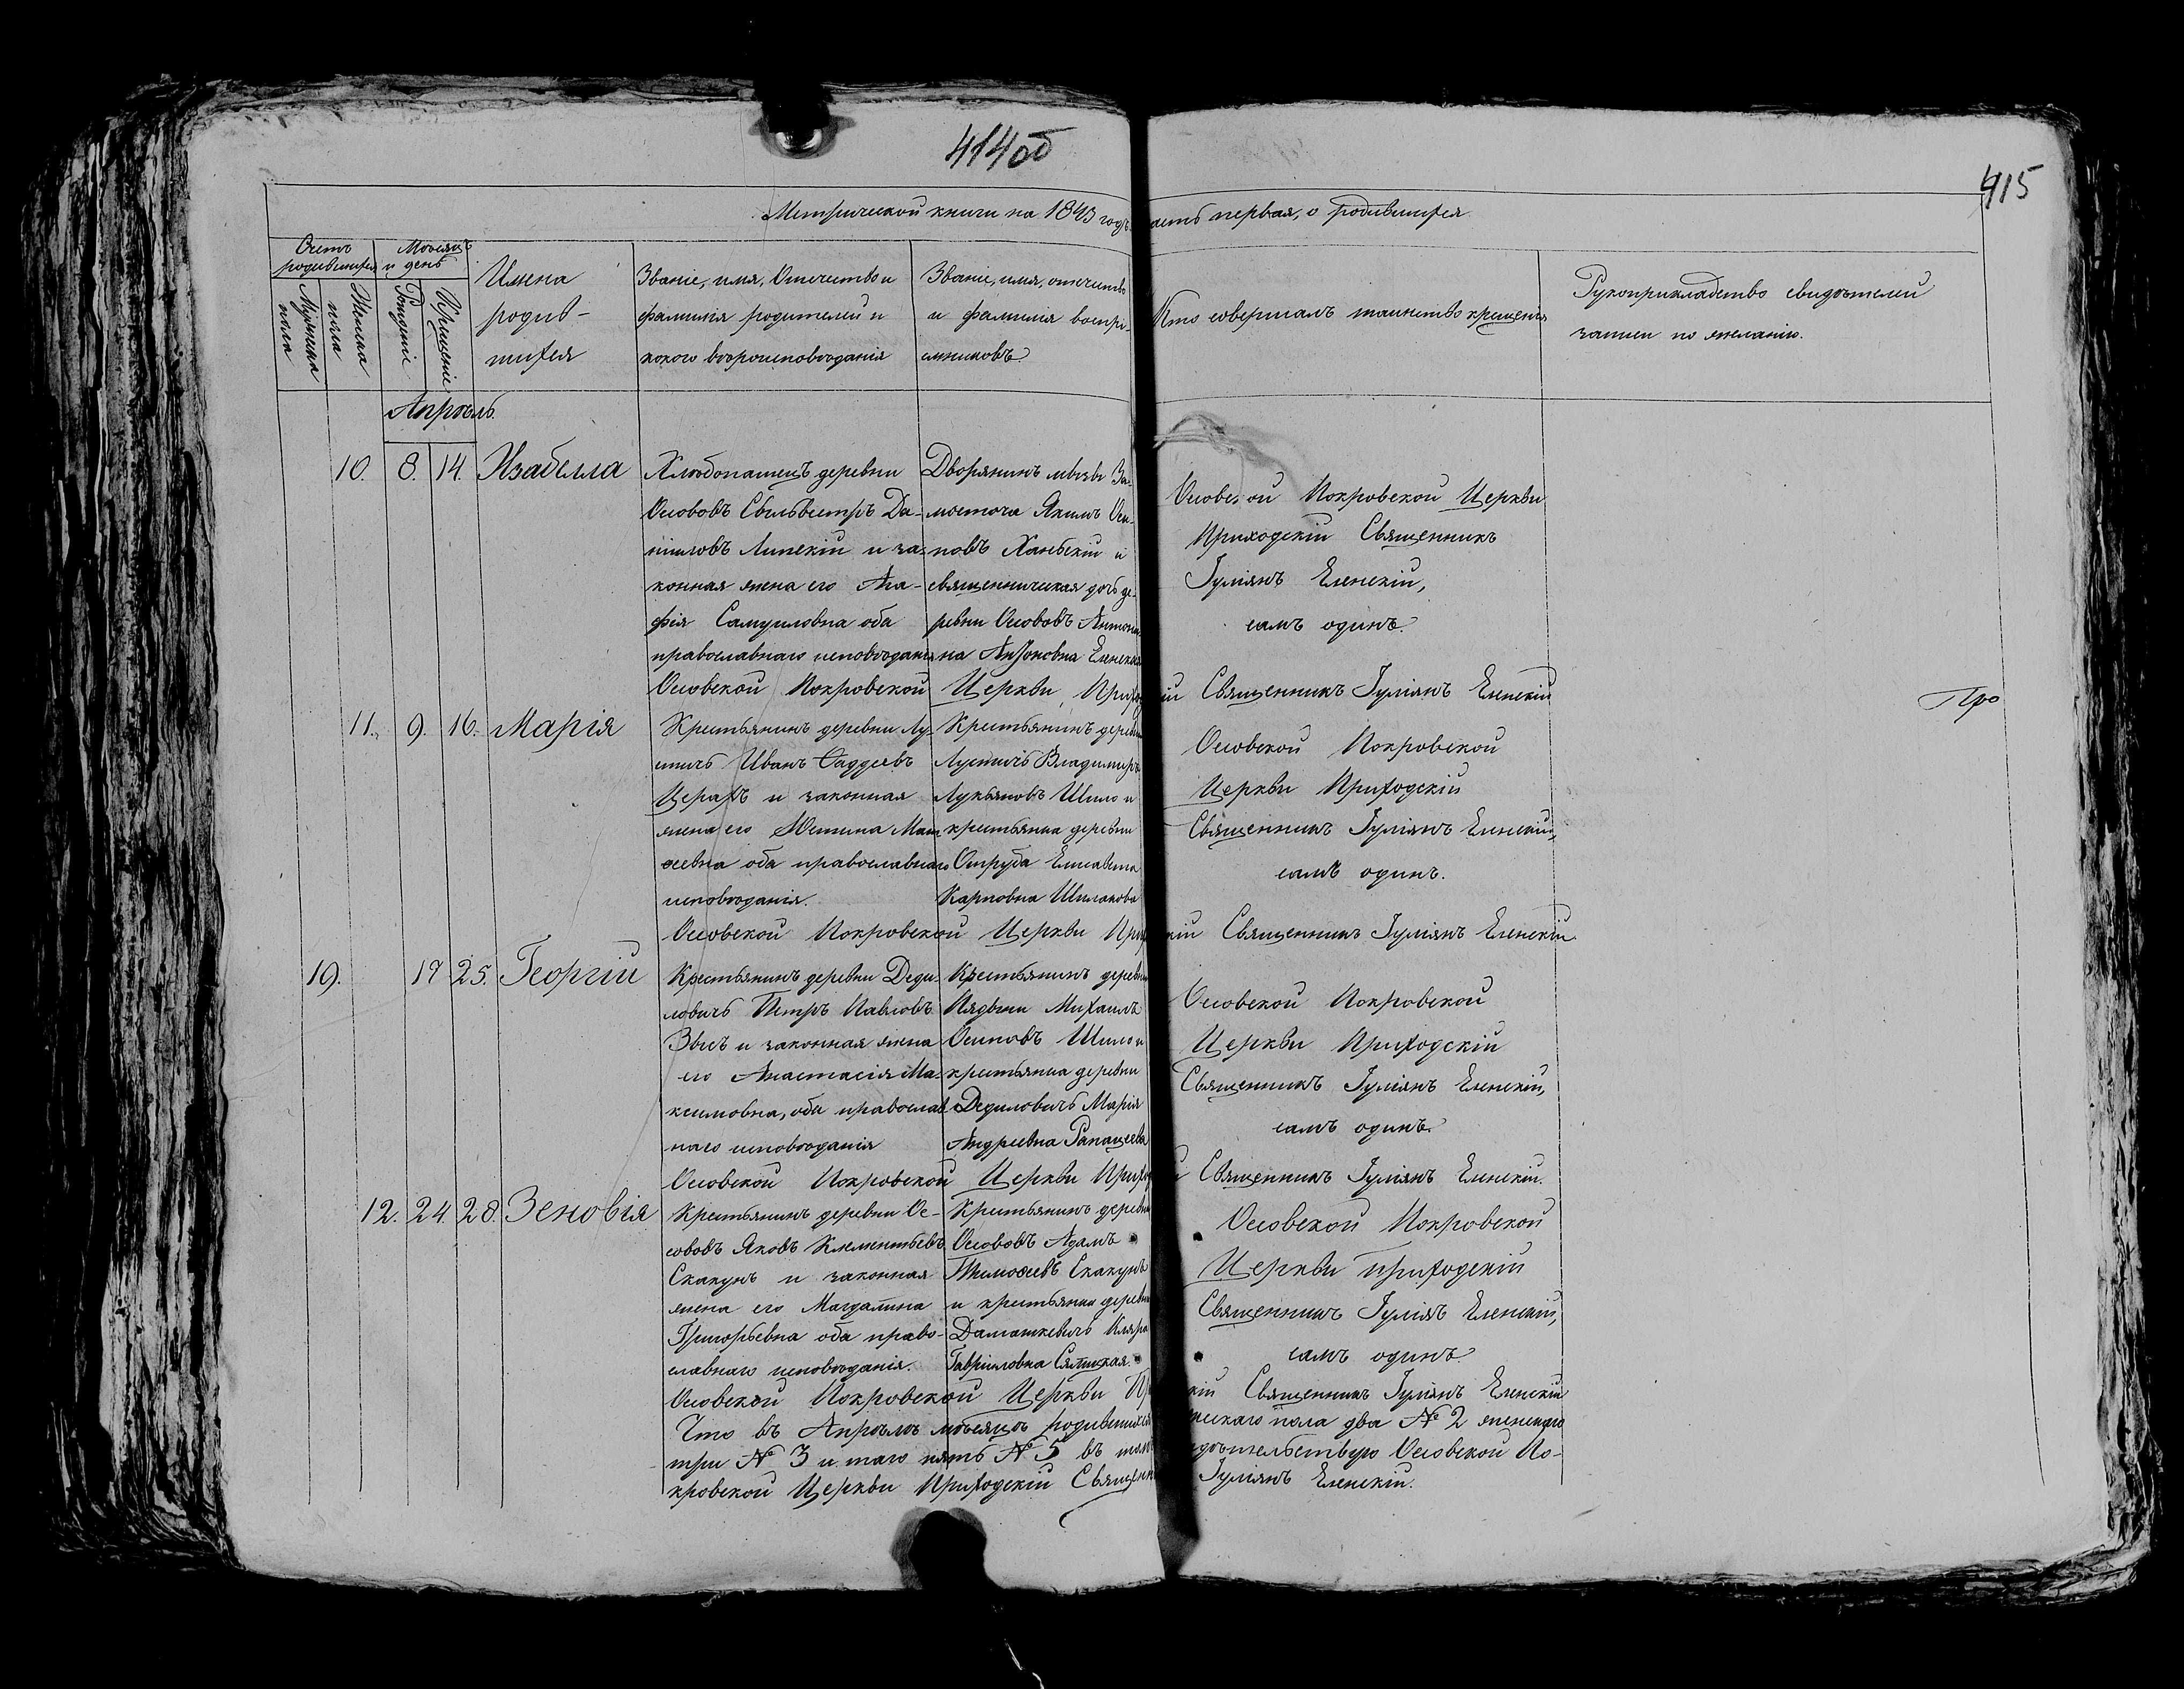 414об
415
Метрической книги на 1843 годъ
часть первая, о родившихся
Счетъ родившихся
Мѣсяцъ и день
Мужеска пола
Женска пола
Рожденіе
Крещеніе
Имена
родив-
шихся
Званіе, имя, Отечество и
фамилія родителей и
какого вѣроисповѣданія
Званіе, имя, отечество
и фамилія воспрі-
емниковъ
Кто совершалъ таинство крещенія
Рукоприкладство свидѣтелей
записи по желанію.
Апрѣль.
10. 8. 14. Изабелла
Хлѣбопашецъ деревни
Осововъ Сильвестръ Да-
ниловъ Липскій и за-
конная жена его Ага-
фія Самуиловна оба
православнаго исповѣданія
Дворянинъ мызы За-
мосточа Якимъ Оси-
повъ Ханьскій и
священническая дочь де-
ревни Осововъ Антони-
на Антоновна Еленская
Осовской Покровской Церкви
Приходскій Священникъ
Іуліянъ Еленскій,
самъ одинъ.
Осовской Покровской Церкви Приход
кій Священникъ Іуліянъ Еленскій
Про
11. 9. 16. Марія
Крестьянинъ деревни Лу-
стичь Иванъ Фаддеевъ
Церахъ и законная
жена его Юстина Мат
феевна оба православнаго
исповѣданія.
Крестьянинъ деревни
Лустичь Владимиръ
Лукьяновъ Шило и
крестьянка деревни
Отруба Елисавета
Карповна Шилакова
Осовской Покровской
Церкви Приходскій
Священникъ Іуліянъ Еленскій,
самъ одинъ.
Осовской Покровской Церкви Прих
кій Священникъ Іуліянъ Еленскій
19. 19 25. Георгій
Крестьянинъ деревни Деди
ловичь Петръ Павловъ
Звисъ и законная жена
его Анастасія Ма-
ксимовна, оба православ
наго исповѣданія
Крестьянинъ деревни
Нядвѣди Михаилъ
Осиповъ Шило и
крестьянка деревни
Дедиловичь Марія
Андреевна Рапацеева
Осовской Покровской
Церкви Приходскій
Священникъ Іуліянъ Еленскій,
самъ одинъ.
Осовской Покровской Церкви Приход
й Священникъ Іуліянъ Еленскій.
12. 24. 28. Зеновія
Крестьянинъ деревни Ос-
ововъ Яковъ Клементьевъ
Скакунъ и законная
жена его Магдалина
Григорьевна оба право-
славнаго исповѣданія.
Крестьянинъ деревни
Осововъ Адамъ
Тимофеевъ Скакунъ
и крестьянка деревни
Дамашкевичь Кляра
Гавриловна Сялицкая.
Осовской Покровской
Церкви приходскій
Священникъ Іуліянъ Еленскій,
самъ одинъ.
Осовской Покровской Церкви Пр
кій Священникъ Іуліянъ Еленскій
Что въ Апрѣлѣ мѣсяцѣ родившихся
ужескаго пола два № 2 женскаго
три № 3 и таго пять № 5 въ томъ
идѣтельствую Осовской По-
кровской Церкви Приходскій Священн
Іуліянъ Еленскій.